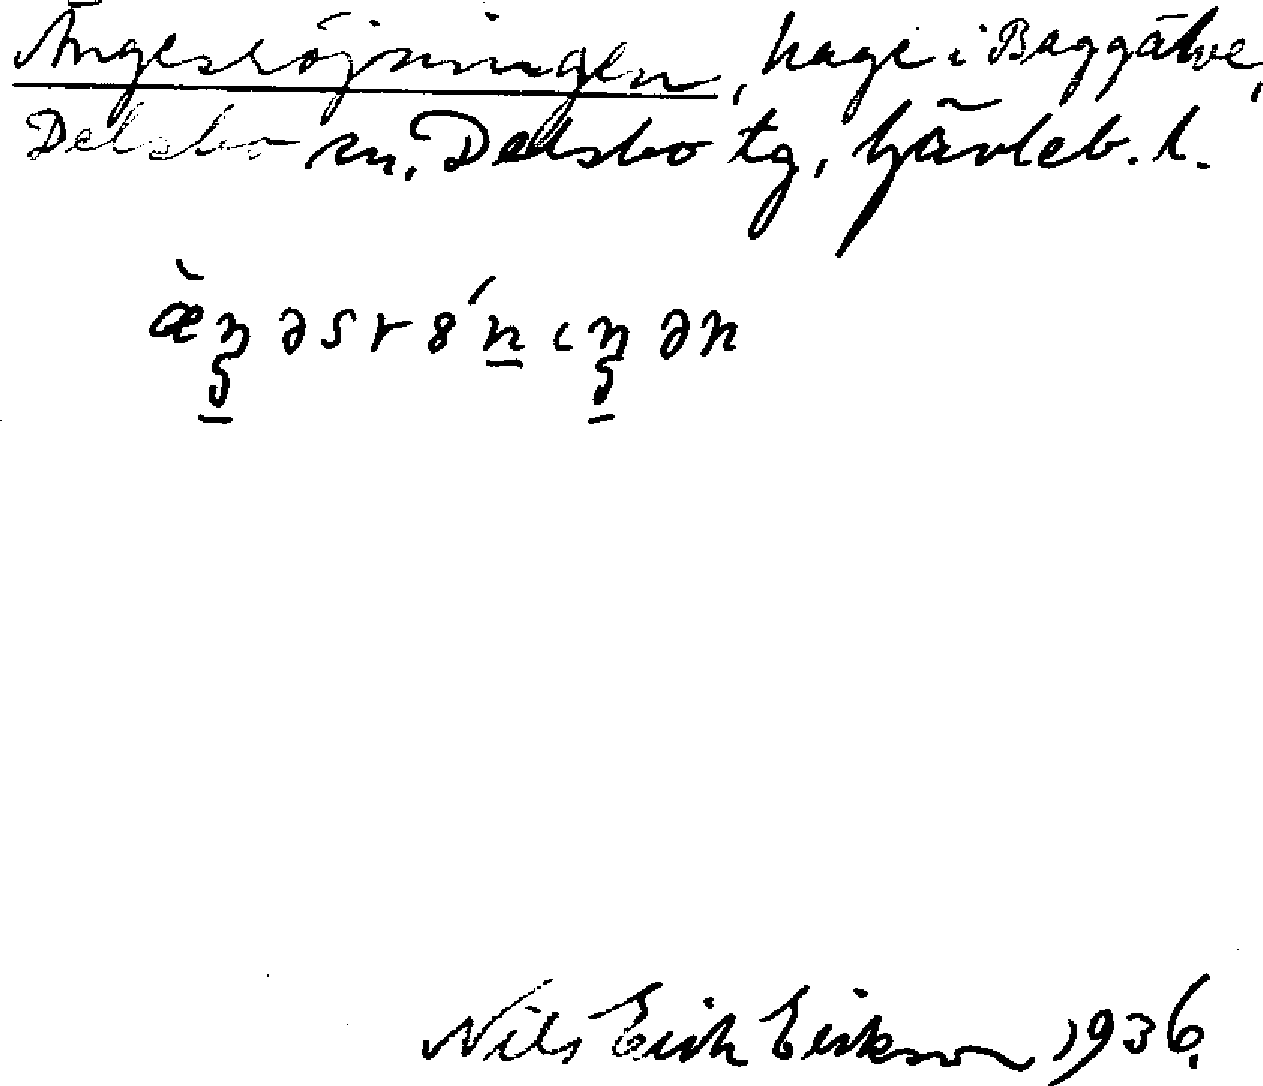 Ängesröjningen, hage i Baggätve,
Delsbo sn. Delsbo tg, Gävleb. l.
Nils Erik Erikson 1936.